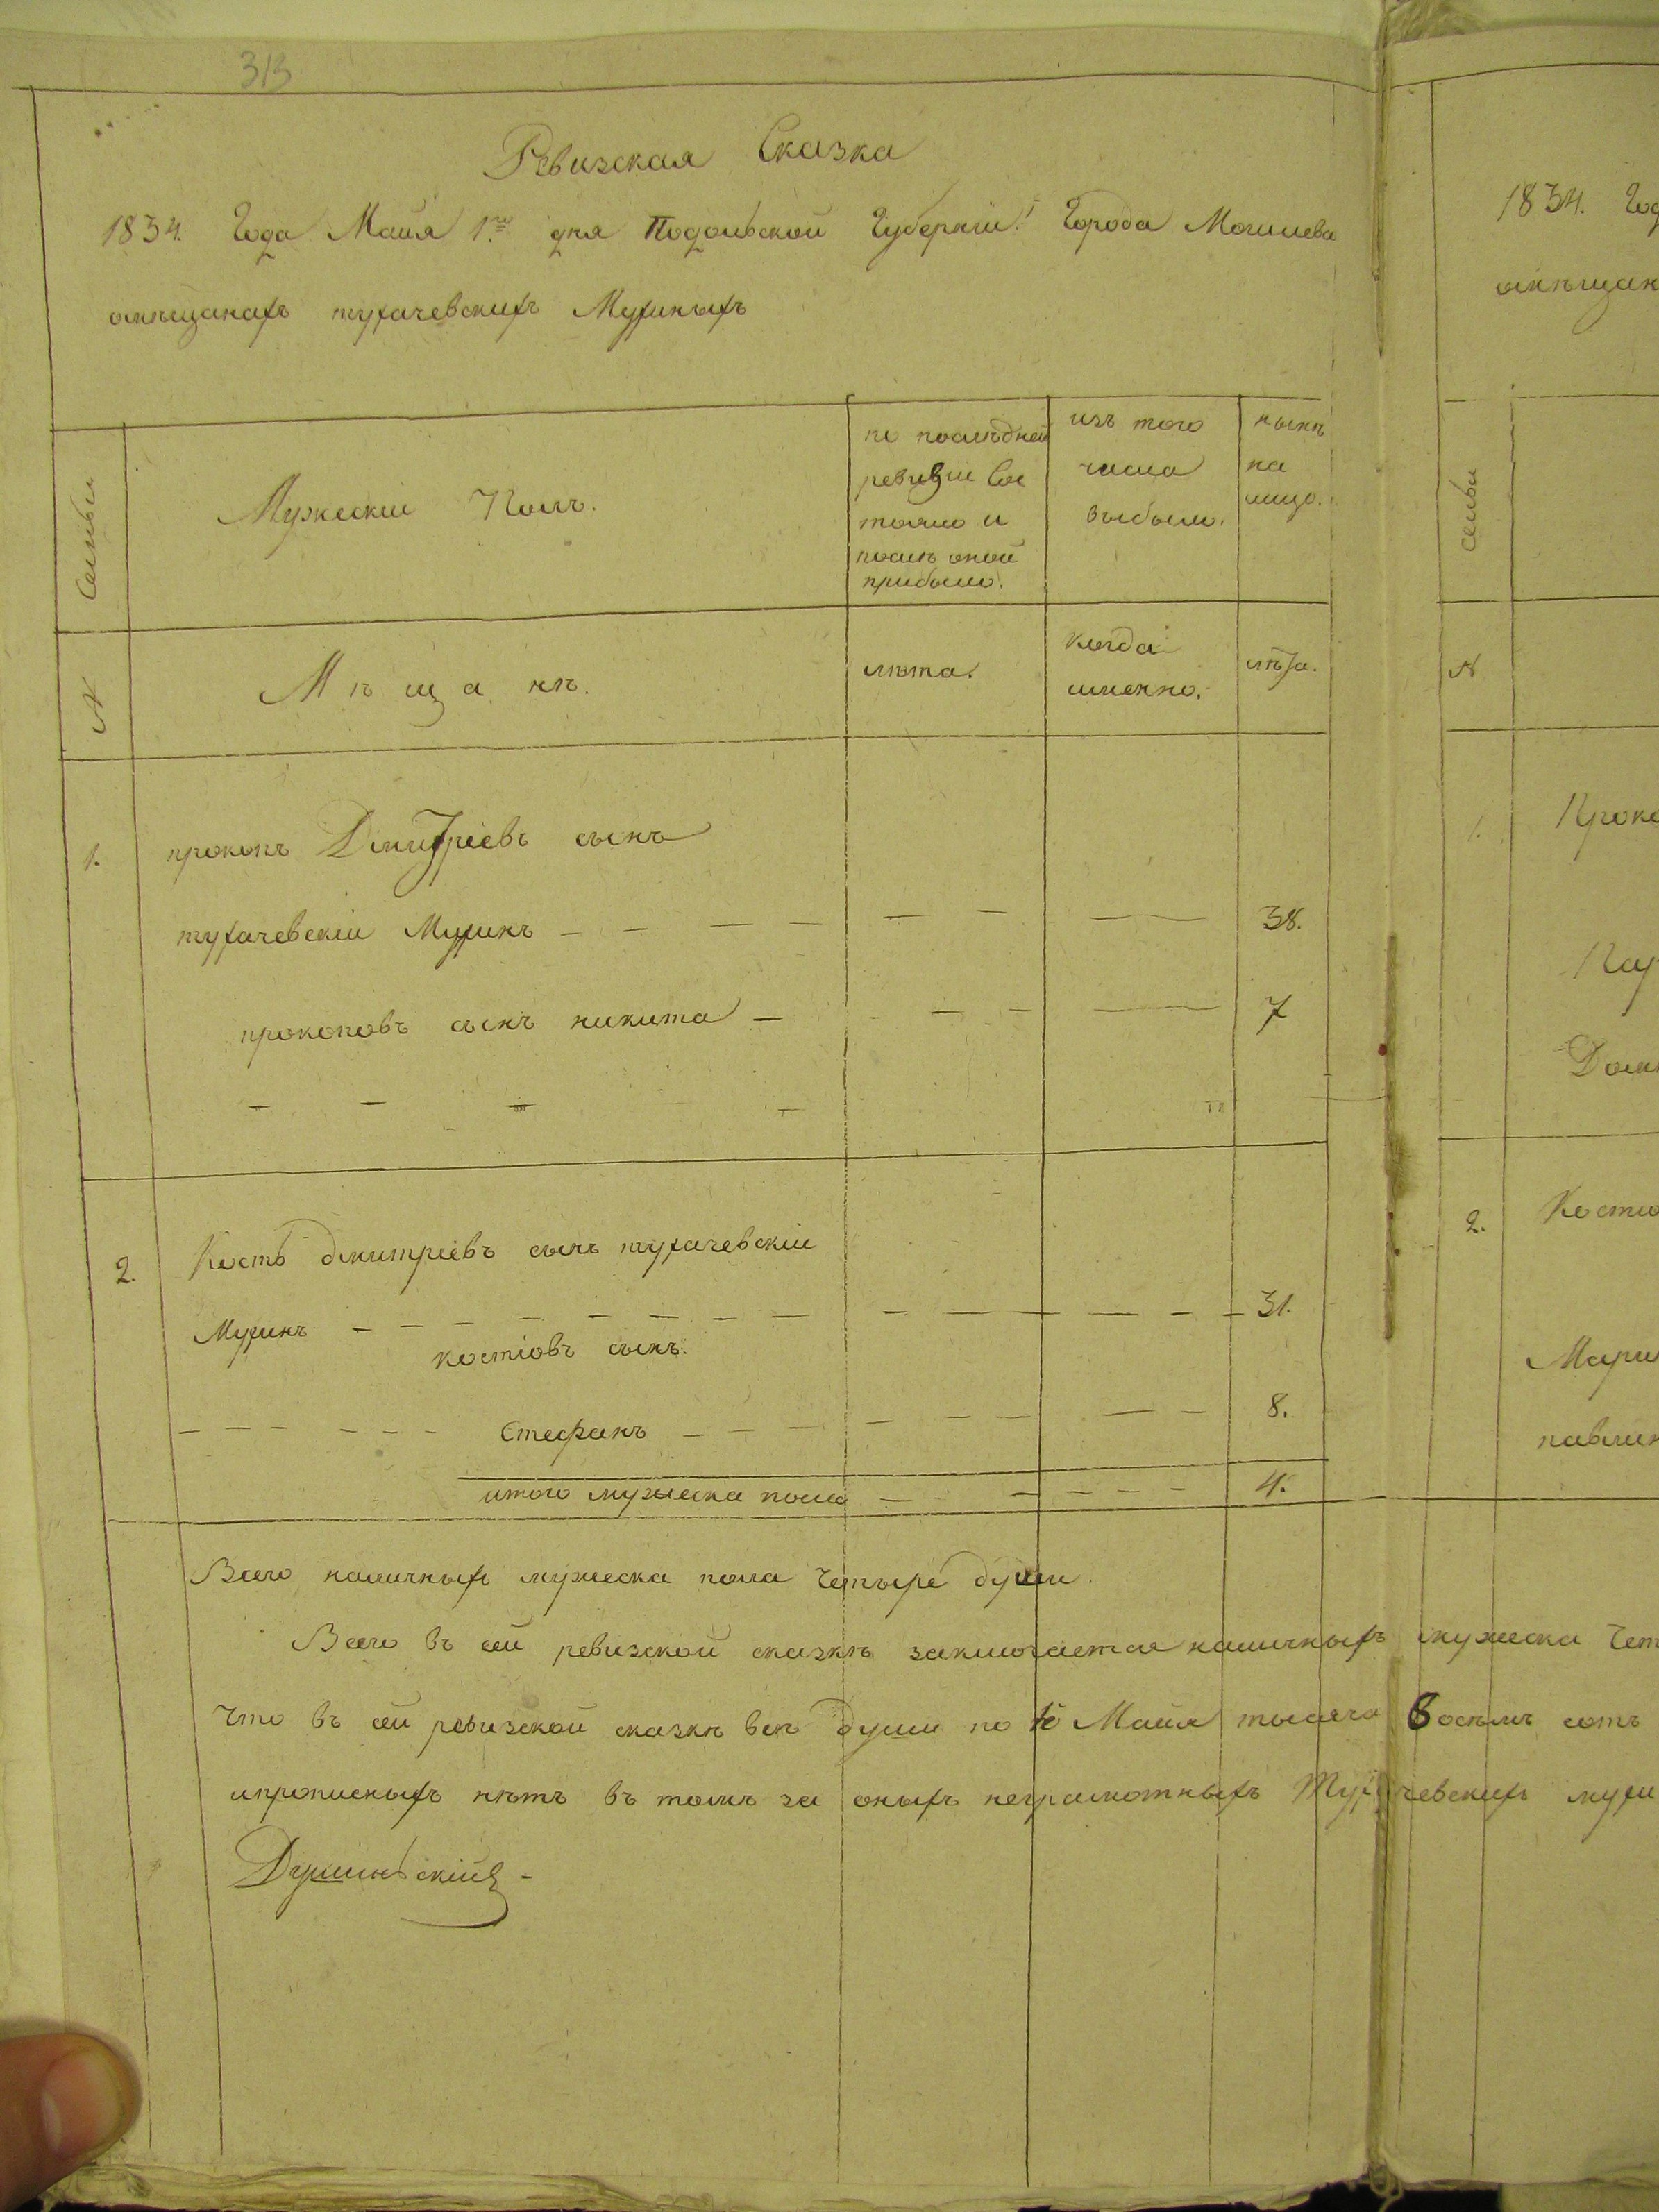 313
Ревизская Сказка
1834. Года Майя 1го дня Подольской Губернии Города Могилева
омѣщанахъ тухачевскихъ Мухиныхъ
Семьи
Мужескiй Полъ.
по послѣдней
ревизiи Сос
тояло и
послѣ оной
прибыло.
изъ того
числа
выбыли.
нынѣ
на
лицо.
№
Мѣщанѣ.
лѣта.
когда
именно.
лѣта.
1. прокопъ Дмитрiевъ сынъ
тухачевскiй Мухинъ — — — — — — 38.
прокоповъ сынъ никита — — — — 7
2. Кость дмитрiевъ сынъ тухачевскiй
Мухинъ — — — — — — — — — — — — 31.
костiовъ сынъ.
— — — — — — Стефанъ — — — — — — — — 8.
итого мужеска пола — — — — — 4.
Всего наличныхъ мужеска пола четыре души.
Всего въ сей ревизской сказкѣ заключается наличныхъ мужеска чет
Что въ сей ревизской сказкѣ всѣ души по 1е Майя тысяча восѣмъ сотъ
ипрописныхъ нѣтъ въ томъ за оныхъ неграмотныхъ Тухачевскихъ мухи
1834. Год
омѣщан
семьи
№
1. Проко
Дом
2. Костю
Мари
павлин